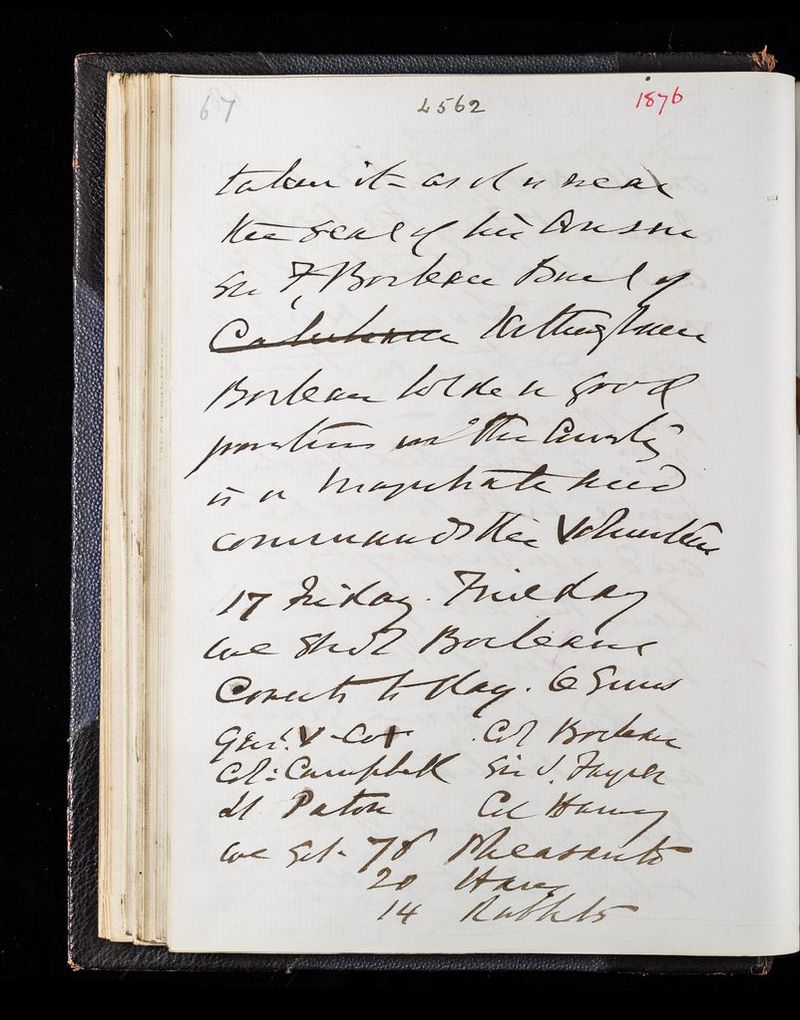 67 4562 1876
taken it as it is near
the seat of his Cousin
Sir F Boileau Bart of
Ketteringham
Boileau holds a good
position in the County
is a Magistrate and
commands the Volunteers
17 Friday. Fine day
we shot Boileaus
Coverts to day. 6 Guns
Genl. Cox Col Boileau
Col: Campbell Sir J. Fayrer
Lt Paton Col Harvey
we got 78 Pheasants
20 Hares
14 Rabbits